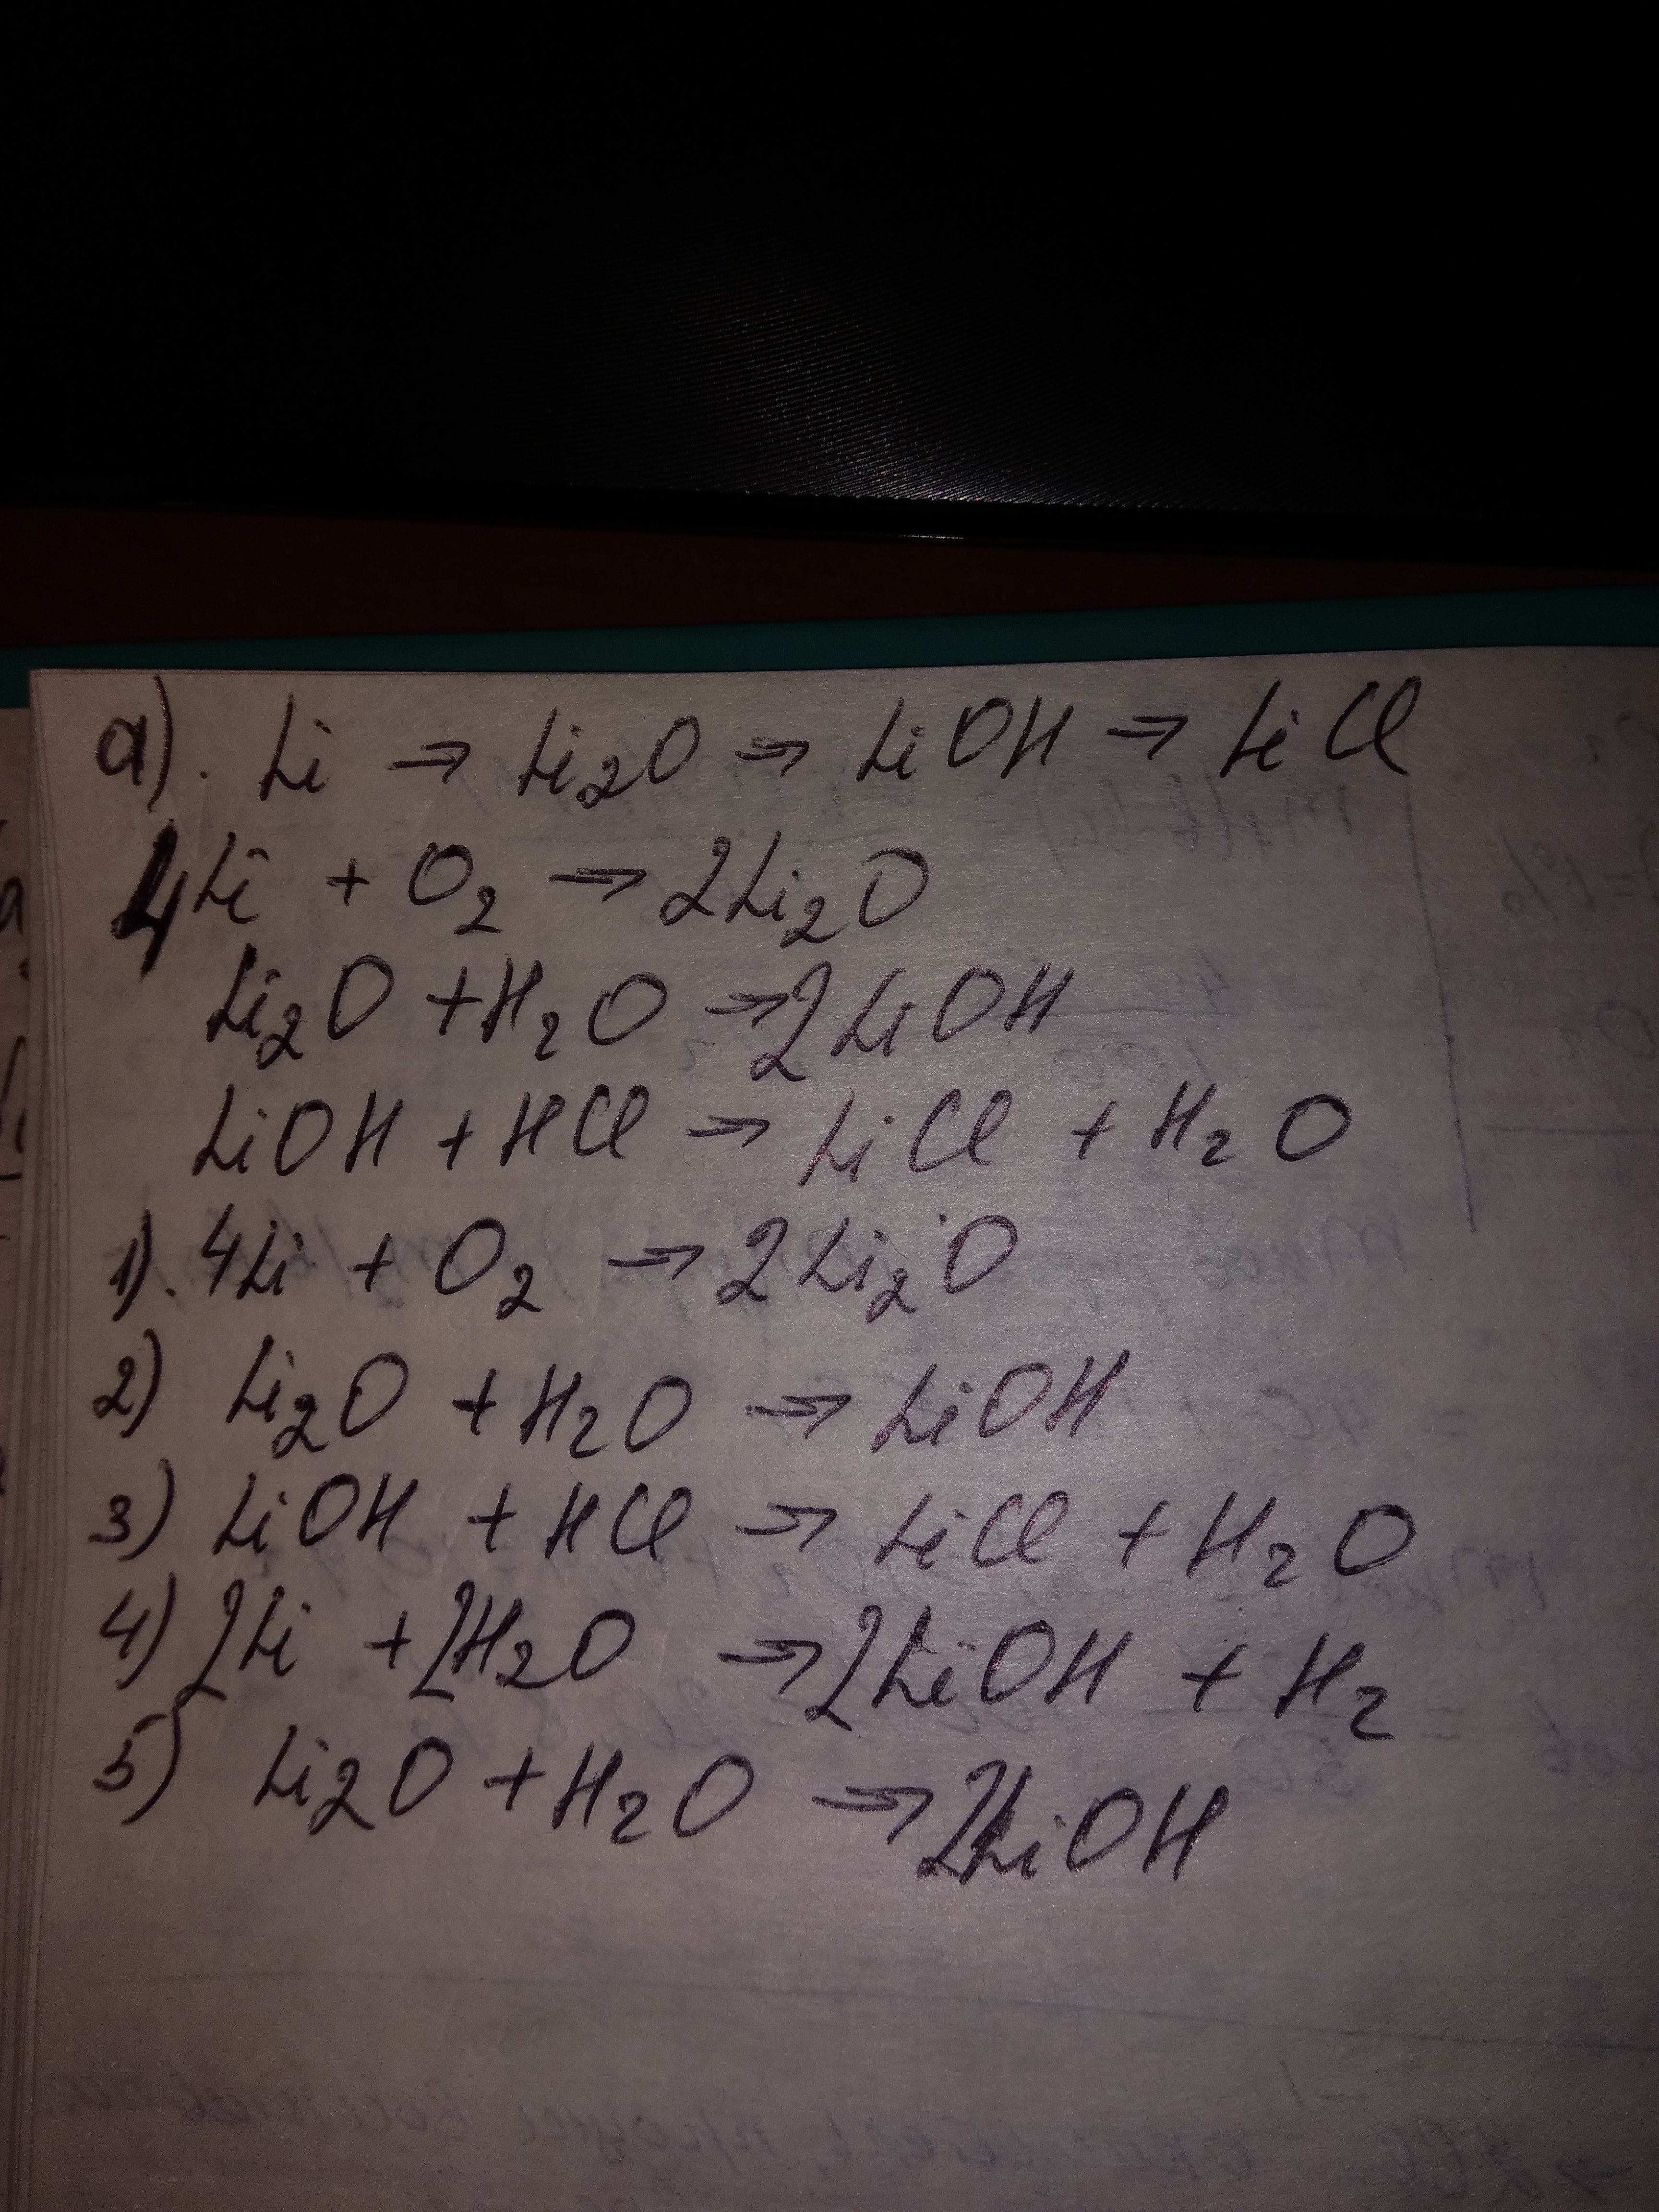 а). Li → Li₂O → LiOH → LiCl
4Li + O₂ → 2Li₂O
Li₂O + H₂O → 2LiOH
LiOH + HCl → LiCl + H₂O
1). 4Li + O₂ → 2Li₂O
2) Li₂O + H₂O → LiOH
3) LiOH + HCl → LiCl + H₂O
4) 2Li + 2H₂O → 2LiOH + H₂
5) Li₂O + H₂O → 2LiOH